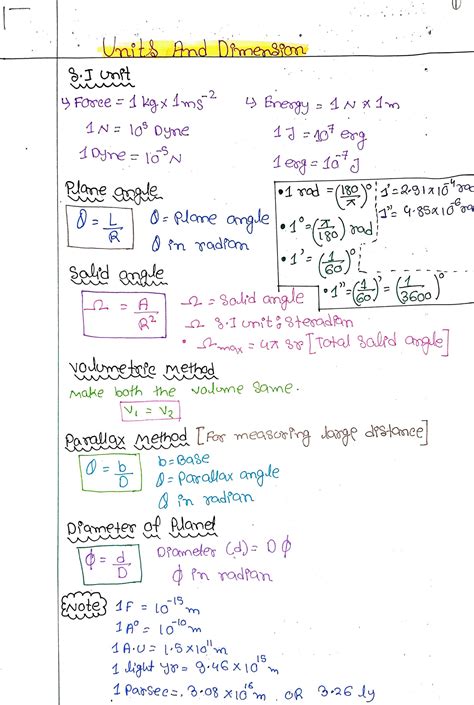 Units And Dimension
S.I unit
↳ Force = 1 kg x 1ms⁻² ↳ Energy = 1 N x 1m
1N = 10⁵ Dyne 1 J = 10⁷ erg
1 Dyne = 10⁻⁵ N 1 erg = 10⁻⁷ J
Plane angle
θ = L/R θ = Plane angle
θ in radian
• 1 rad = (180/π)° 1' = 2.91x10⁻⁴ rad
• 1° = (π/180) rad 1" = 4.85x10⁻⁶ rad
• 1' = (1/60)°
• 1" = (1/60)' = (1/3600)°
Solid angle
Ω = A/R² Ω = Solid angle
Ω S.I unit : Steradian
• Ωmax = 4π sr [Total solid angle]
Volumetric Method
Make both the volume same.
V₁ = V₂
Parallax Method [For measuring large distance]
θ = b/D b = Base
θ = Parallax angle
θ in radian
Diameter of Planet
ϕ = d/D Diameter (d) = Dϕ
ϕ in radian
Note 1F = 10⁻¹⁵ m
1A° = 10⁻¹⁰ m
1A.U = 1.5x10¹¹ m
1 light yr = 9.46 x 10¹⁵ m
1 Parsec = 3.08 x 10¹⁶ m OR 3.26 ly